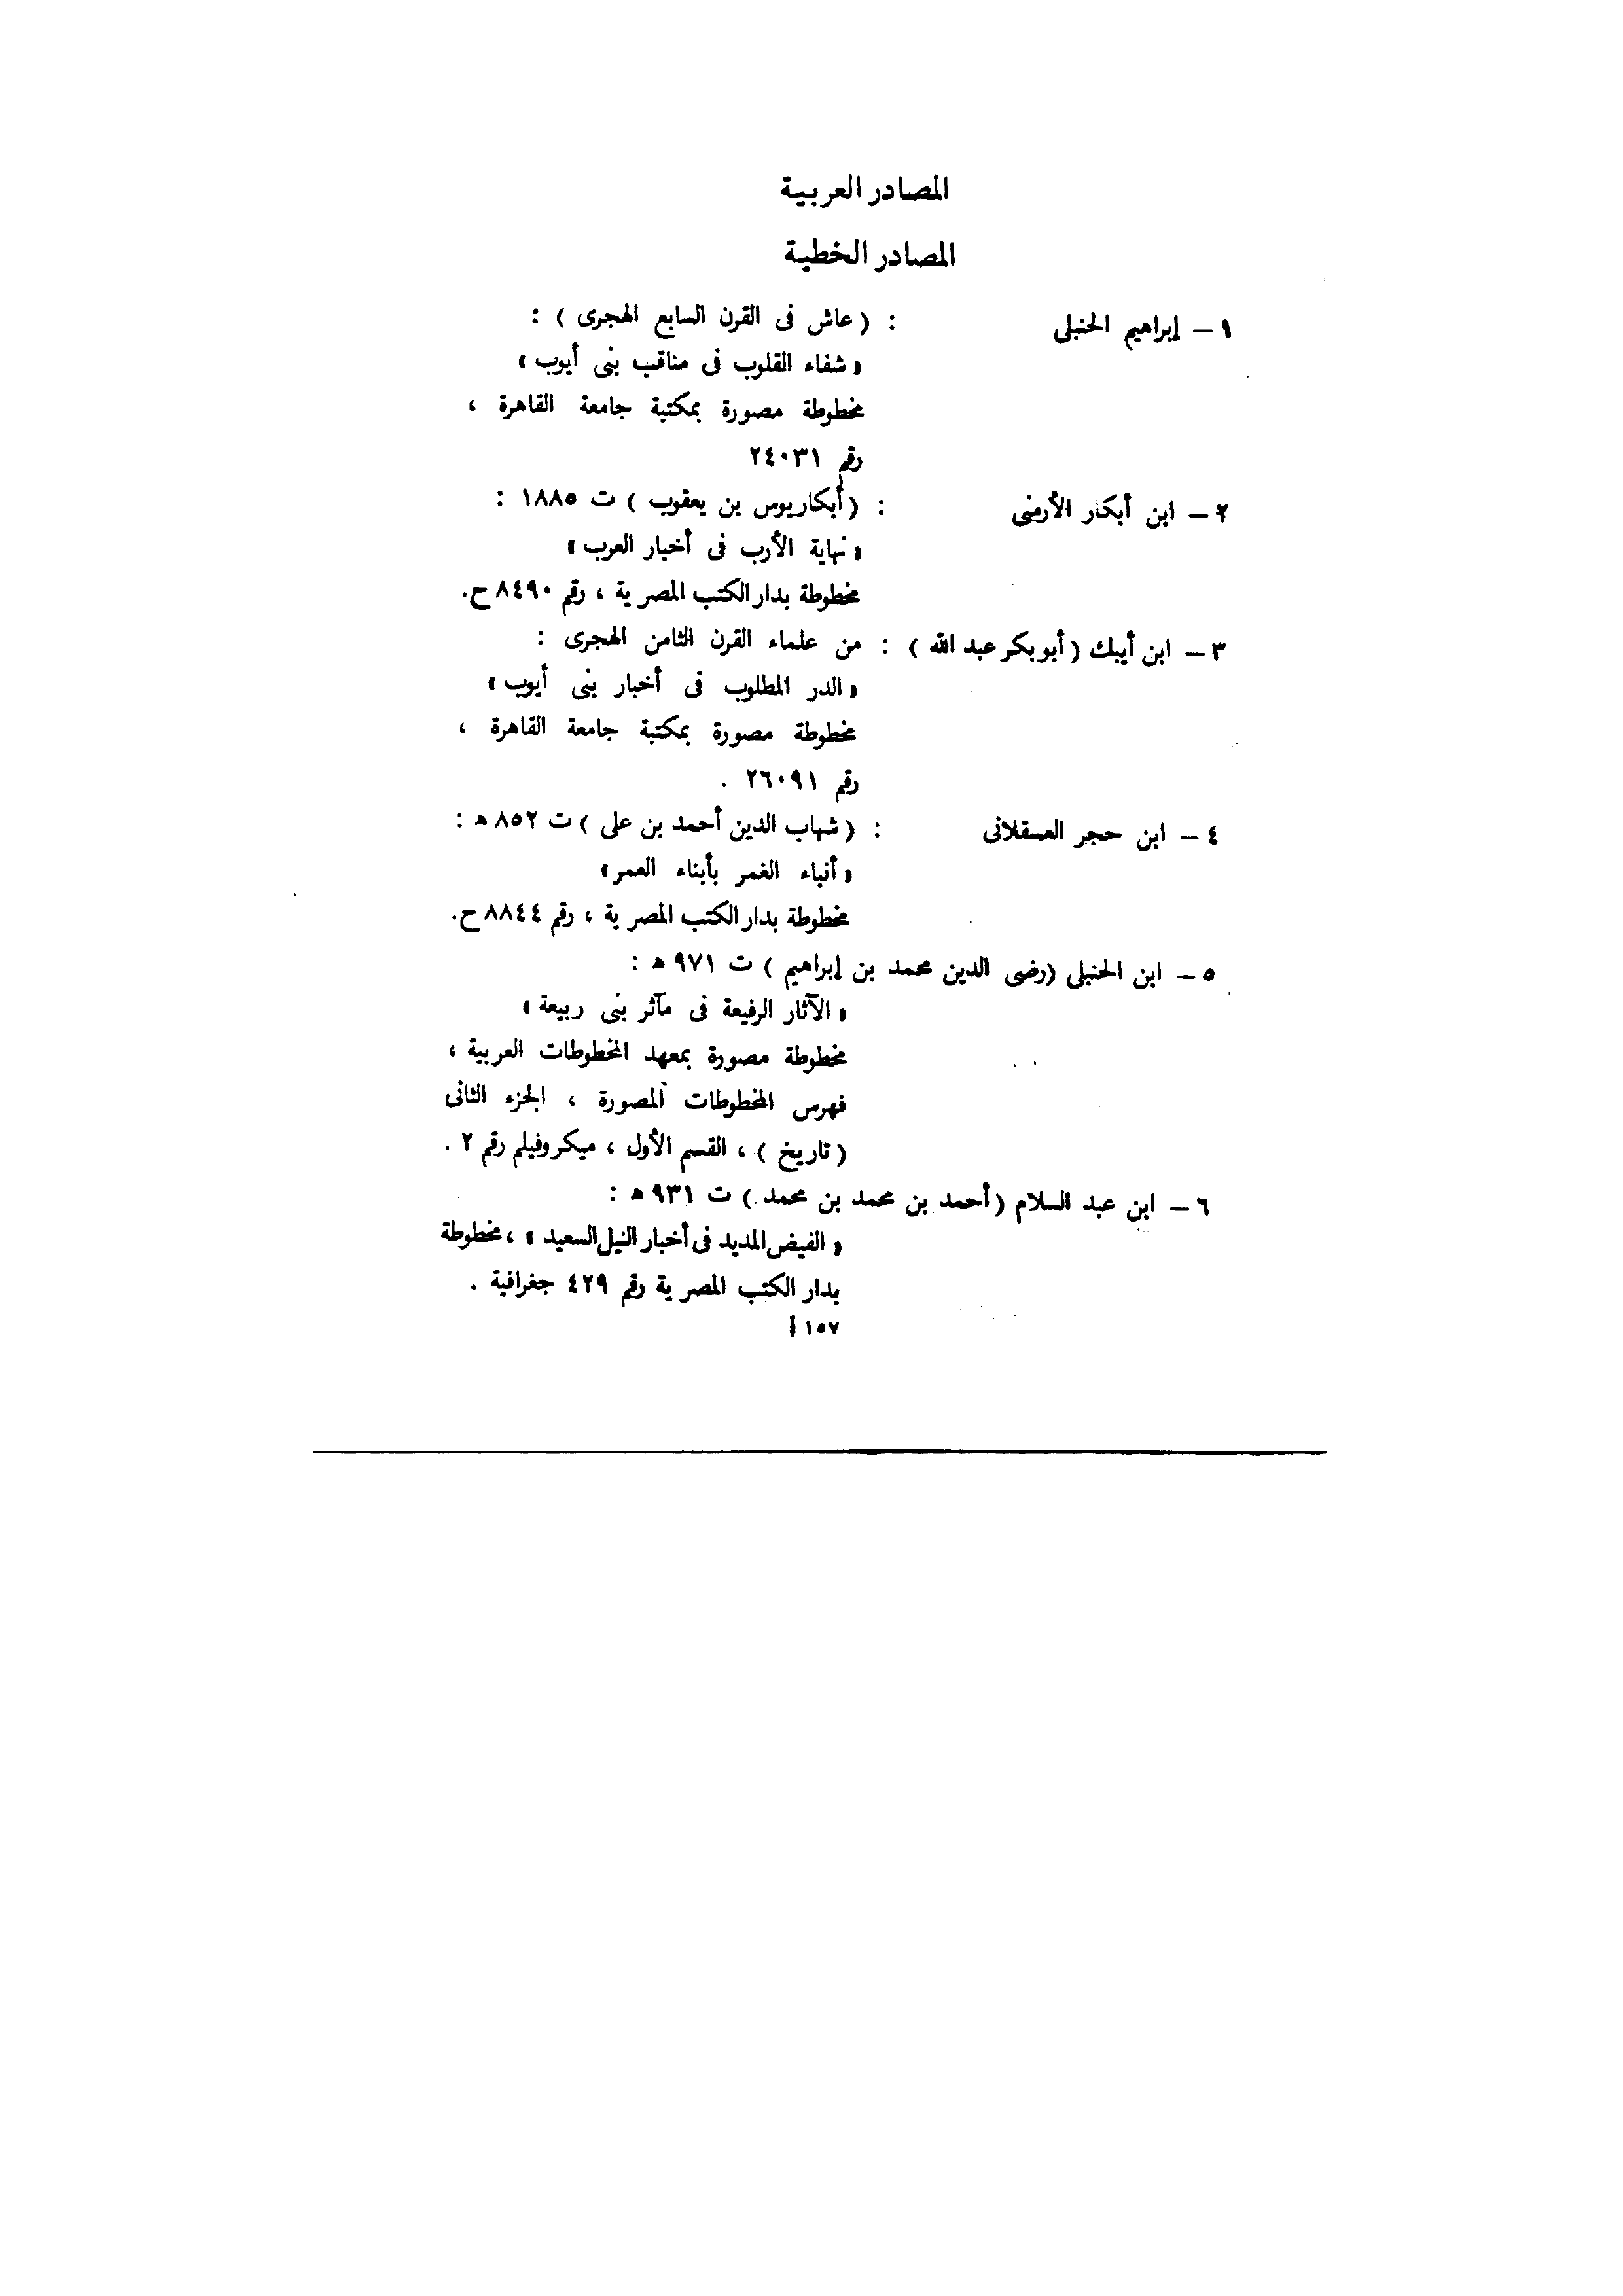 المصادر العربية
المصادر الخطية
١ – إبراهيم الحنبلى : ( عاش فى القرن السابع الهجرى ) :
« شفاء القلوب فى مناقب بنى أيوب »
مخطوطة مصورة بمكتبة جامعة القاهرة ،
رقم ٢٤٠٣١
٢ – ابن أبكار الأرمنى : ( أبكاريوس بن يعقوب ) ت ١٨٨٥ :
« نهاية الأرب فى أخبار العرب »
مخطوطة بدار الكتب المصرية ، رقم ٨٤٩٠ ح.
٣ – ابن أيبك ( أبو بكر عبد الله ) : من علماء القرن الثامن الهجرى :
« الدر المطلوب فى أخبار بنى أيوب »
مخطوطة مصورة بمكتبة جامعة القاهرة ،
رقم ٢٦٠٩١ .
٤ – ابن حجر العسقلانى : ( شهاب الدين أحمد بن على ) ت ٨٥٢ ه :
« أنباء الغمر بأبناء العمر »
مخطوطة بدار الكتب المصرية ، رقم ٨٨٤٤ ح.
٥ – ابن الحنبلى ( رضى الدين محمد بن إبراهيم ) ت ٩٧١ ه :
« الآثار الرفيعة فى مآثر بنى ربيعة »
مخطوطة مصورة بمعهد المخطوطات العربية ،
فهرس المخطوطات المصورة ، الجزء الثانى
( تاريخ ) ، القسم الأول ، ميكروفيلم رقم ٢ .
٦ – ابن عبد السلام ( أحمد بن محمد بن محمد ) ت ٩٣١ ه :
« الفيض المديد فى أخبار النيل السعيد » ، مخطوطة
بدار الكتب المصرية رقم ٤٢٩ جغرافية .
١٥٧ أ